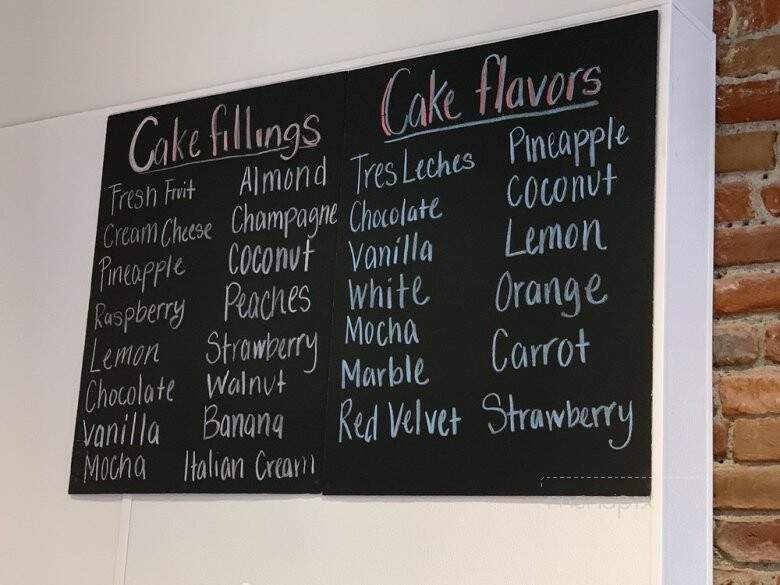 Cake fillings
Fresh Fruit
Cream Cheese
Pineapple
Raspberry
Lemon
Chocolate
Vanilla
Mocha
Almond
Champagne
Coconut
Peaches
Strawberry
Walnut
Banana
Italian Cream
Cake flavors
Tres Leches
Chocolate
Vanilla
White
Mocha
Marble
Red Velvet
Pineapple
Coconut
Lemon
Orange
Carrot
Strawberry
menupix